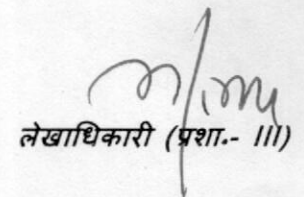 लेखाधिकारी (प्रशा.- III)